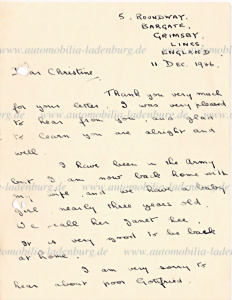 5. ROUNDWAY,
BARGATE,
GRIMSBY,
LINCS,
ENGLAND
11 DEC. 1946.
Dear Christine,
Thank you very much
for your letter. I was very pleased
to hear from you and glad
to learn you are alright and
well.
I have been in the Army
but I am now back home with
my wife and we have a baby
girl nearly three years old.
We call her Janet Lee.
It is very good to be back
at home.
I am very sorry to
hear about poor Gottfried.
www.automobilia-ladenburg.de
www.automobilia-ladenburg.de